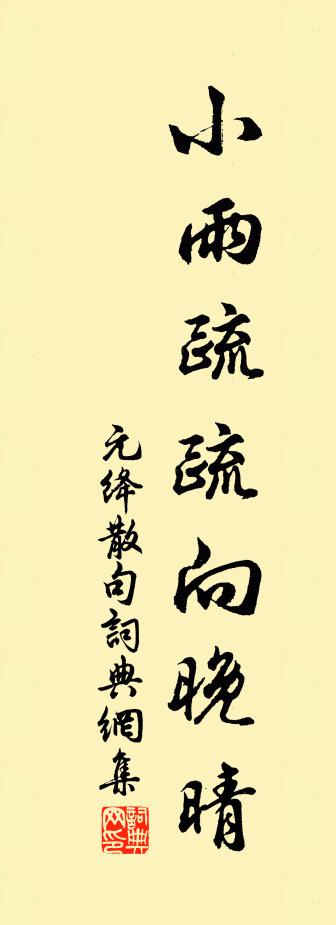 小雨疏疏向晚晴
元绛散句詞典網集
詞典
网印